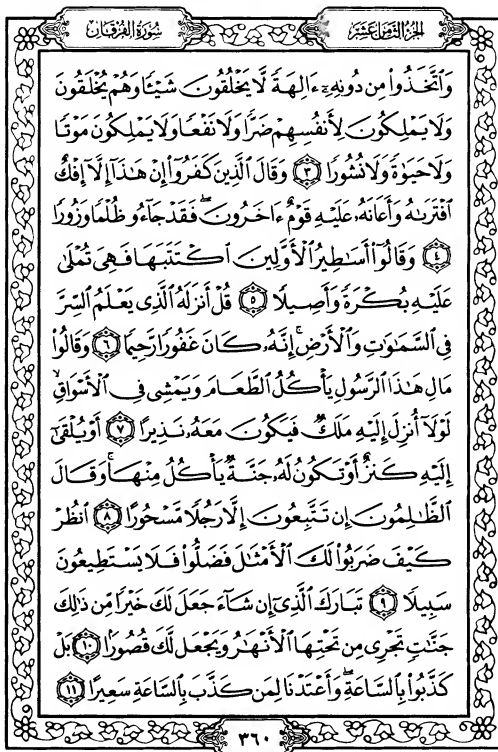 سُورَةُ الفُرْقَان
الجُزْءُ الثَّامِنَ عَشَرَ
وَاتَّخَذُوا۟ مِن دُونِهِۦٓ ءَالِهَةً لَّا يَخْلُقُونَ شَيْـًٔا وَهُمْ يُخْلَقُونَ
وَلَا يَمْلِكُونَ لِأَنفُسِهِمْ ضَرًّا وَلَا نَفْعًا وَلَا يَمْلِكُونَ مَوْتًا
وَلَا حَيَوٰةً وَلَا نُشُورًا ٣ وَقَالَ الَّذِينَ كَفَرُوٓا۟ إِنْ هَـٰذَآ إِلَّآ إِفْكٌ
افْتَرَىٰهُ وَأَعَانَهُۥ عَلَيْهِ قَوْمٌ ءَاخَرُونَ ۖ فَقَدْ جَآءُو ظُلْمًا وَزُورًا
٤ وَقَالُوٓا۟ أَسَـٰطِيرُ الْأَوَّلِينَ اكْتَتَبَهَا فَهِىَ تُمْلَىٰ
عَلَيْهِ بُكْرَةً وَأَصِيلًا ٥ قُلْ أَنزَلَهُ الَّذِى يَعْلَمُ السِّرَّ
فِى السَّمَـٰوَٰتِ وَالْأَرْضِ ۚ إِنَّهُۥ كَانَ غَفُورًا رَّحِيمًا ٦ وَقَالُوا۟
مَالِ هَـٰذَا الرَّسُولِ يَأْكُلُ الطَّعَامَ وَيَمْشِى فِى الْأَسْوَاقِ ۙ
لَوْلَآ أُنزِلَ إِلَيْهِ مَلَكٌ فَيَكُونَ مَعَهُۥ نَذِيرًا ٧ أَوْ يُلْقَىٰٓ
إِلَيْهِ كَنزٌ أَوْ تَكُونُ لَهُۥ جَنَّةٌ يَأْكُلُ مِنْهَا ۚ وَقَالَ
الظَّـٰلِمُونَ إِن تَتَّبِعُونَ إِلَّا رَجُلًا مَّسْحُورًا ٨ انظُرْ
كَيْفَ ضَرَبُوا۟ لَكَ الْأَمْثَـٰلَ فَضَلُّوا۟ فَلَا يَسْتَطِيعُونَ
سَبِيلًا ٩ تَبَارَكَ الَّذِىٓ إِن شَآءَ جَعَلَ لَكَ خَيْرًا مِّن ذَٰلِكَ
جَنَّـٰتٍ تَجْرِى مِن تَحْتِهَا الْأَنْهَـٰرُ وَيَجْعَل لَّكَ قُصُورًۢا ١٠ بَلْ
كَذَّبُوا۟ بِالسَّاعَةِ ۖ وَأَعْتَدْنَا لِمَن كَذَّبَ بِالسَّاعَةِ سَعِيرًا ١١
٣٦٠